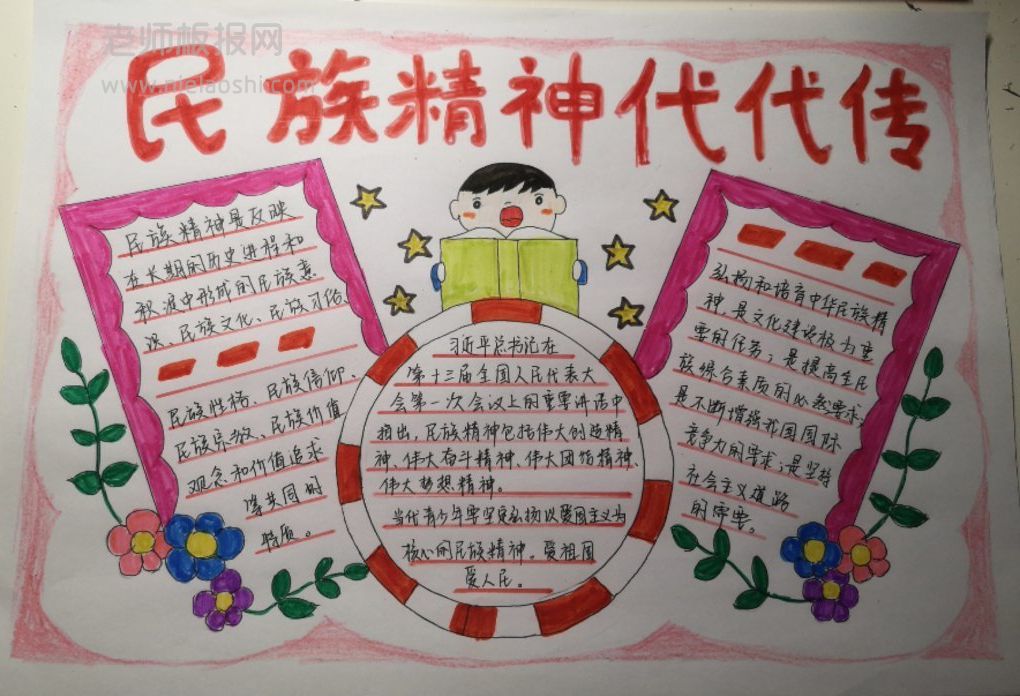 老师板报网
www.nielaoshi.com
民族精神代代传
民族精神是反映
在长期的历史进程和
积淀中形成的民族意
识、民族文化、民族习俗、
民族性格、民族信仰、
民族宗教、民族价值
观念和价值追求
等共同的
特质。
习近平总书记在
第十三届全国人民代表大
会第一次会议上的重要讲话中
指出,民族精神包括伟大创造精
神、伟大奋斗精神、伟大团结精神、
伟大梦想精神。
当代青少年要坚定弘扬以爱国主义为
核心的民族精神。爱祖国
爱人民。
弘扬和培育中华民族精
神,是文化建设极为重
要的任务;是提高全民
族综合素质的必然要求;
是不断增强我国国际
竞争力的要求;是坚持
社会主义道路
的需要。